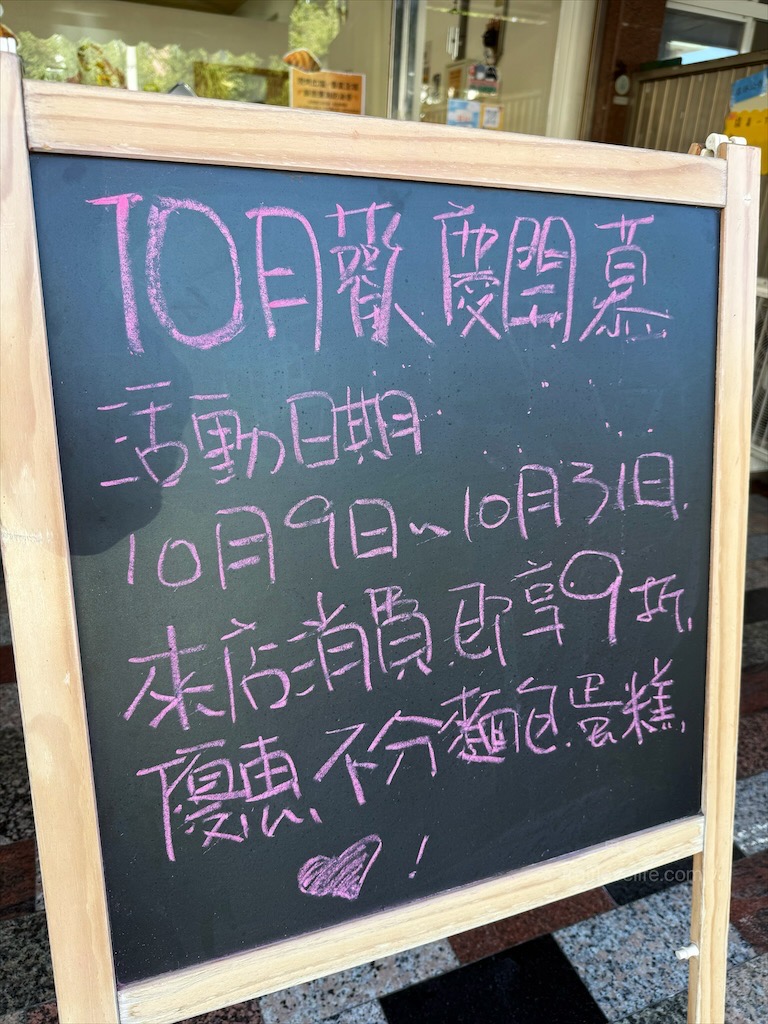 10月歡慶開慕
活動日期
10月9日~10月31日.
來店消費即享9折,
優惠、不分麵包.蛋糕,
!